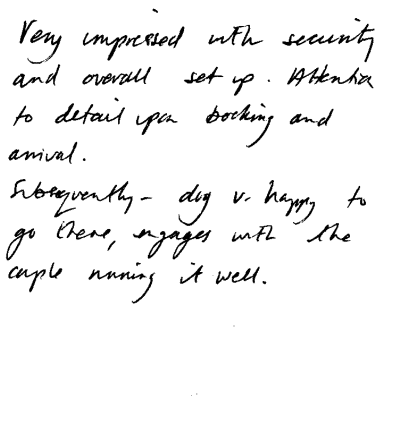 Very impressed with security
and overall set up. Attention
to detail upon booking and
arrival.
Subsequently - dog v. happy to
go there, engages with the
couple running it well.